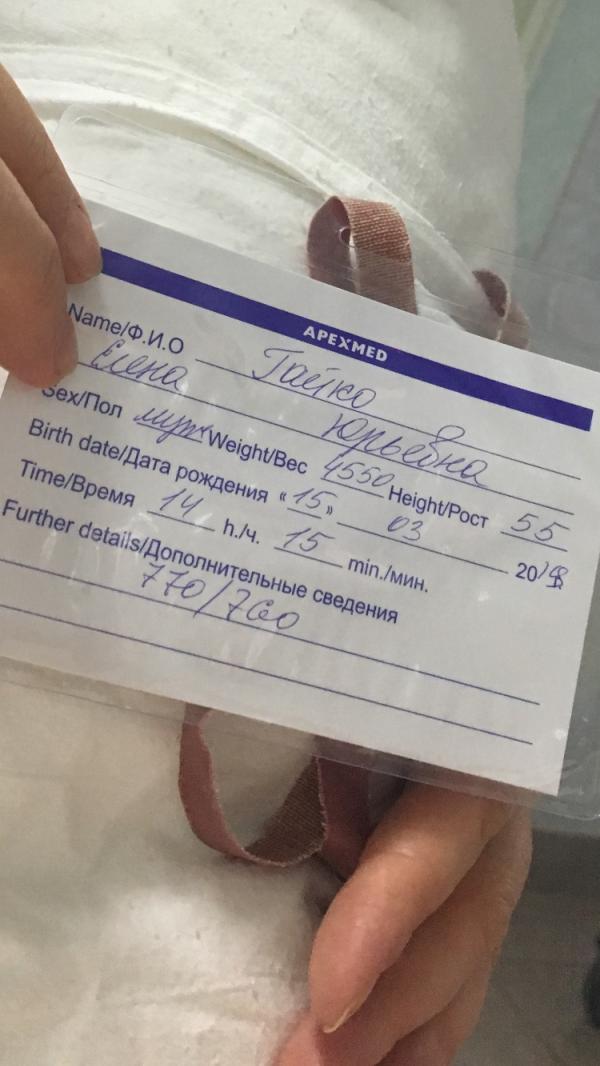 APEXMED
Name/Ф.И.О Гайко
Елена Юрьевна
Sex/Пол муж Weight/Вес 4550 Height/Рост 55
Birth date/Дата рождения «15» 03 20
Time/Время 14 h./ч. 15 min./мин.
Further details/Дополнительные сведения
770/760